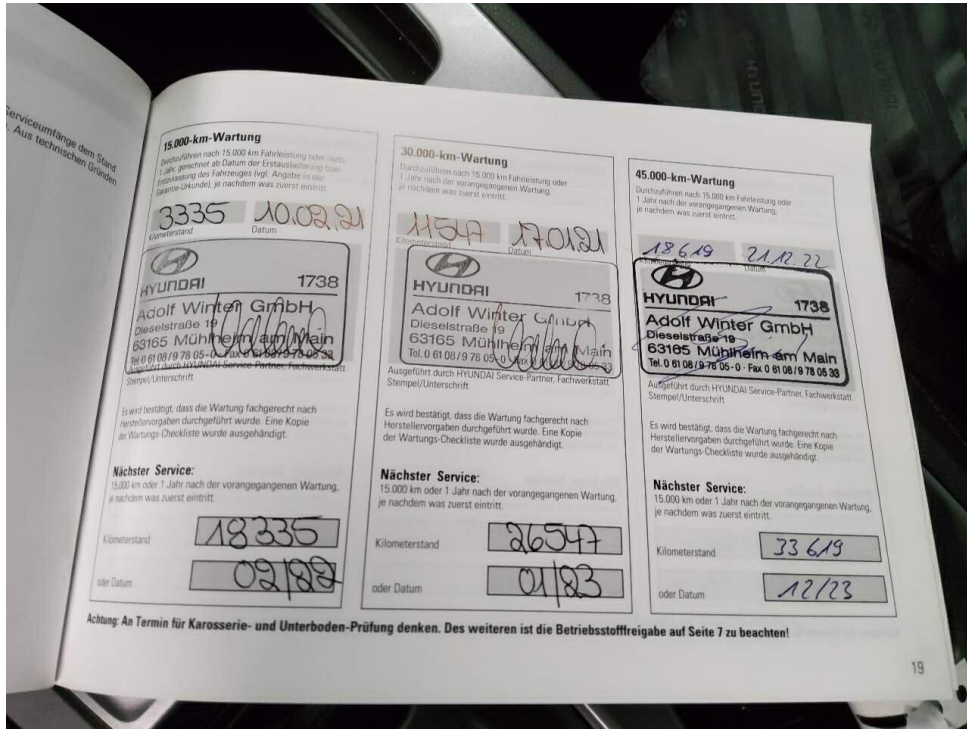 Serviceumfänge dem Stand
Aus technischen Gründen
15.000-km-Wartung
Durchzuführen nach 15.000 km Fahrleistung oder nach
1 Jahr, gerechnet ab Datum der Erstauslieferung bzw.
Erstzulassung des Fahrzeuges (vgl. Angabe in der
Garantie-Urkunde), je nachdem was zuerst eintritt.
3335 10.02.21
Kilometerstand Datum
HYUNDAI 1738
Adolf Winter GmbH
Dieselstraße 19
63165 Mühlheim am Main
Tel. 0 61 08 / 9 78 05-0 Fax 0 61 08 / 9 78 05 33
Ausgeführt durch HYUNDAI Service-Partner, Fachwerkstatt
Stempel/Unterschrift
Es wird bestätigt, dass die Wartung fachgerecht nach
Herstellervorgaben durchgeführt wurde. Eine Kopie
der Wartungs-Checkliste wurde ausgehändigt.
Nächster Service:
15.000 km oder 1 Jahr nach der vorangegangenen Wartung,
je nachdem was zuerst eintritt.
Kilometerstand 18335
oder Datum 02/22
30.000-km-Wartung
Durchzuführen nach 15.000 km Fahrleistung oder
1 Jahr nach der vorangegangenen Wartung,
je nachdem was zuerst eintritt.
11547 170121
Kilometerstand Datum
HYUNDAI 1738
Adolf Winter GmbH
Dieselstraße 19
63165 Mühlheim am Main
Tel. 0 61 08 / 9 78 05-0 Fax 0 61 08 / 9 78 05 33
Ausgeführt durch HYUNDAI Service-Partner, Fachwerkstatt
Stempel/Unterschrift
Es wird bestätigt, dass die Wartung fachgerecht nach
Herstellervorgaben durchgeführt wurde. Eine Kopie
der Wartungs-Checkliste wurde ausgehändigt.
Nächster Service:
15.000 km oder 1 Jahr nach der vorangegangenen Wartung,
je nachdem was zuerst eintritt.
Kilometerstand 26547
oder Datum 01/23
45.000-km-Wartung
Durchzuführen nach 15.000 km Fahrleistung oder
1 Jahr nach der vorangegangenen Wartung,
je nachdem was zuerst eintritt.
18.619 21.12.22
Datum
HYUNDAI 1738
Adolf Winter GmbH
Dieselstraße 19
63165 Mühlheim am Main
Tel. 0 61 08 / 9 78 05-0 · Fax 0 61 08 / 9 78 05 33
Ausgeführt durch HYUNDAI Service-Partner, Fachwerkstatt
Stempel/Unterschrift
Es wird bestätigt, dass die Wartung fachgerecht nach
Herstellervorgaben durchgeführt wurde. Eine Kopie
der Wartungs-Checkliste wurde ausgehändigt.
Nächster Service:
15.000 km oder 1 Jahr nach der vorangegangenen Wartung,
je nachdem was zuerst eintritt.
Kilometerstand 33619
oder Datum 12/23
Achtung: An Termin für Karosserie- und Unterboden-Prüfung denken. Des weiteren ist die Betriebsstofffreigabe auf Seite 7 zu beachten!
19